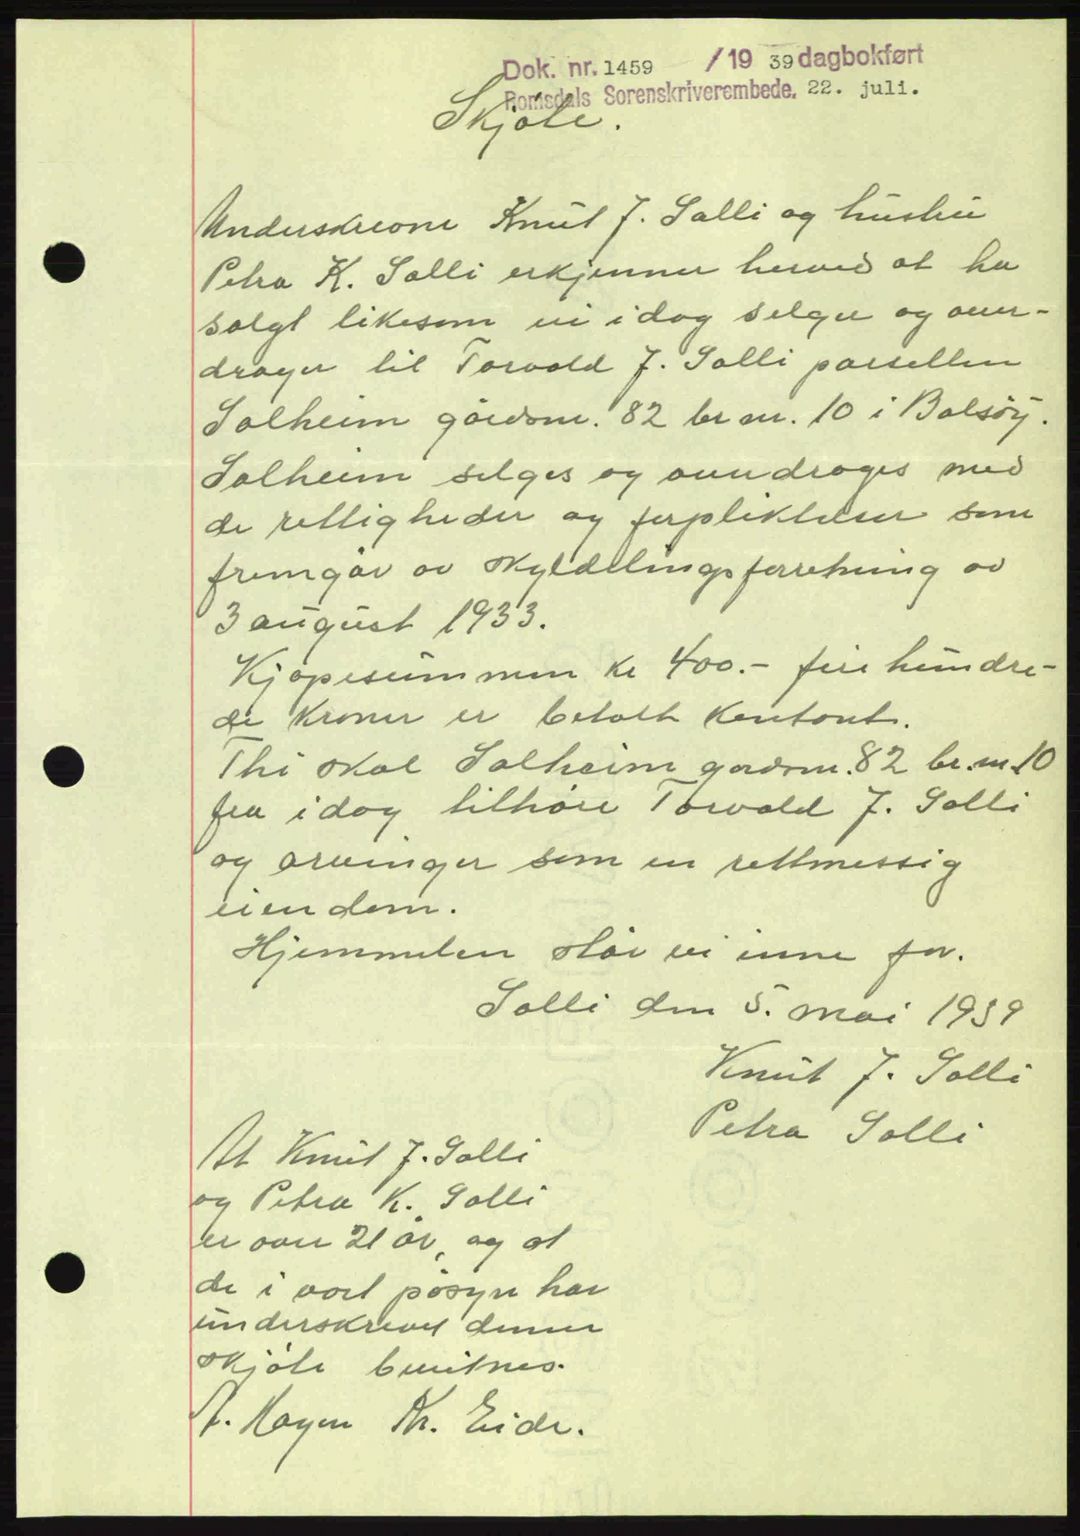 Dok. nr. 1459 / 19 39 dagbokført
Romsdals Sorenskriverembede. 22. juli.
Skjøte.
Underskrevne Knut J. Solli og hustru
Petra K. Solli erkjenner herved at ha
solgt likesom vi idag selger og over-
drager til Torvald J. Solli parsellen
Solheim gårdsnr. 82 br nr. 10 i Bolsøy.
Solheim selges og overdrages med
de rettigheder og forpliktelser som
fremgår av skylddelingsforretning av
3 august 1933.
Kjøpesummen kr 400.- fire hundre-
de kroner er betalt kontant.
Thi skal Solheim gardsnr. 82 br. nr. 10
fra idag tilhøre Torvald J. Solli
og arvinger som en rettmessig
eiendom.
Hjemmelen står vi inne for.
Solli den 5. mai 1939
Knut J. Solli
Petra Solli
At Knut J. Solli
og Petra K. Solli
er over 21 år, og at
de i vort påsyn har
underskrevet denne
skjøte bevitnes.
Kr. Eide.